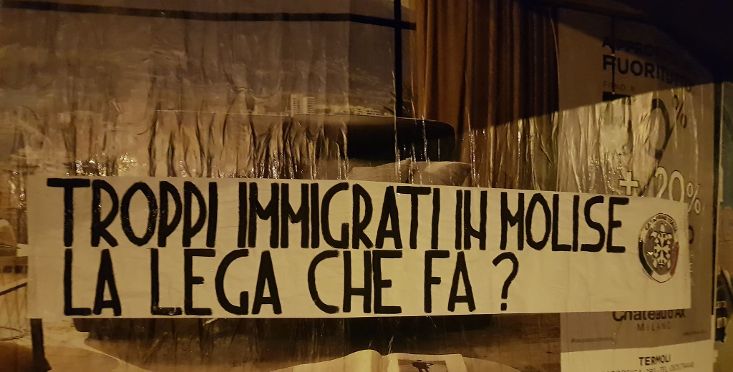 TROPPI IMMIGRATI IN MOLISE
LA LEGA CHE FA ?
FUORITUTTO
+ 20%
Chateau d'Ax
MILANO
TERMOLI